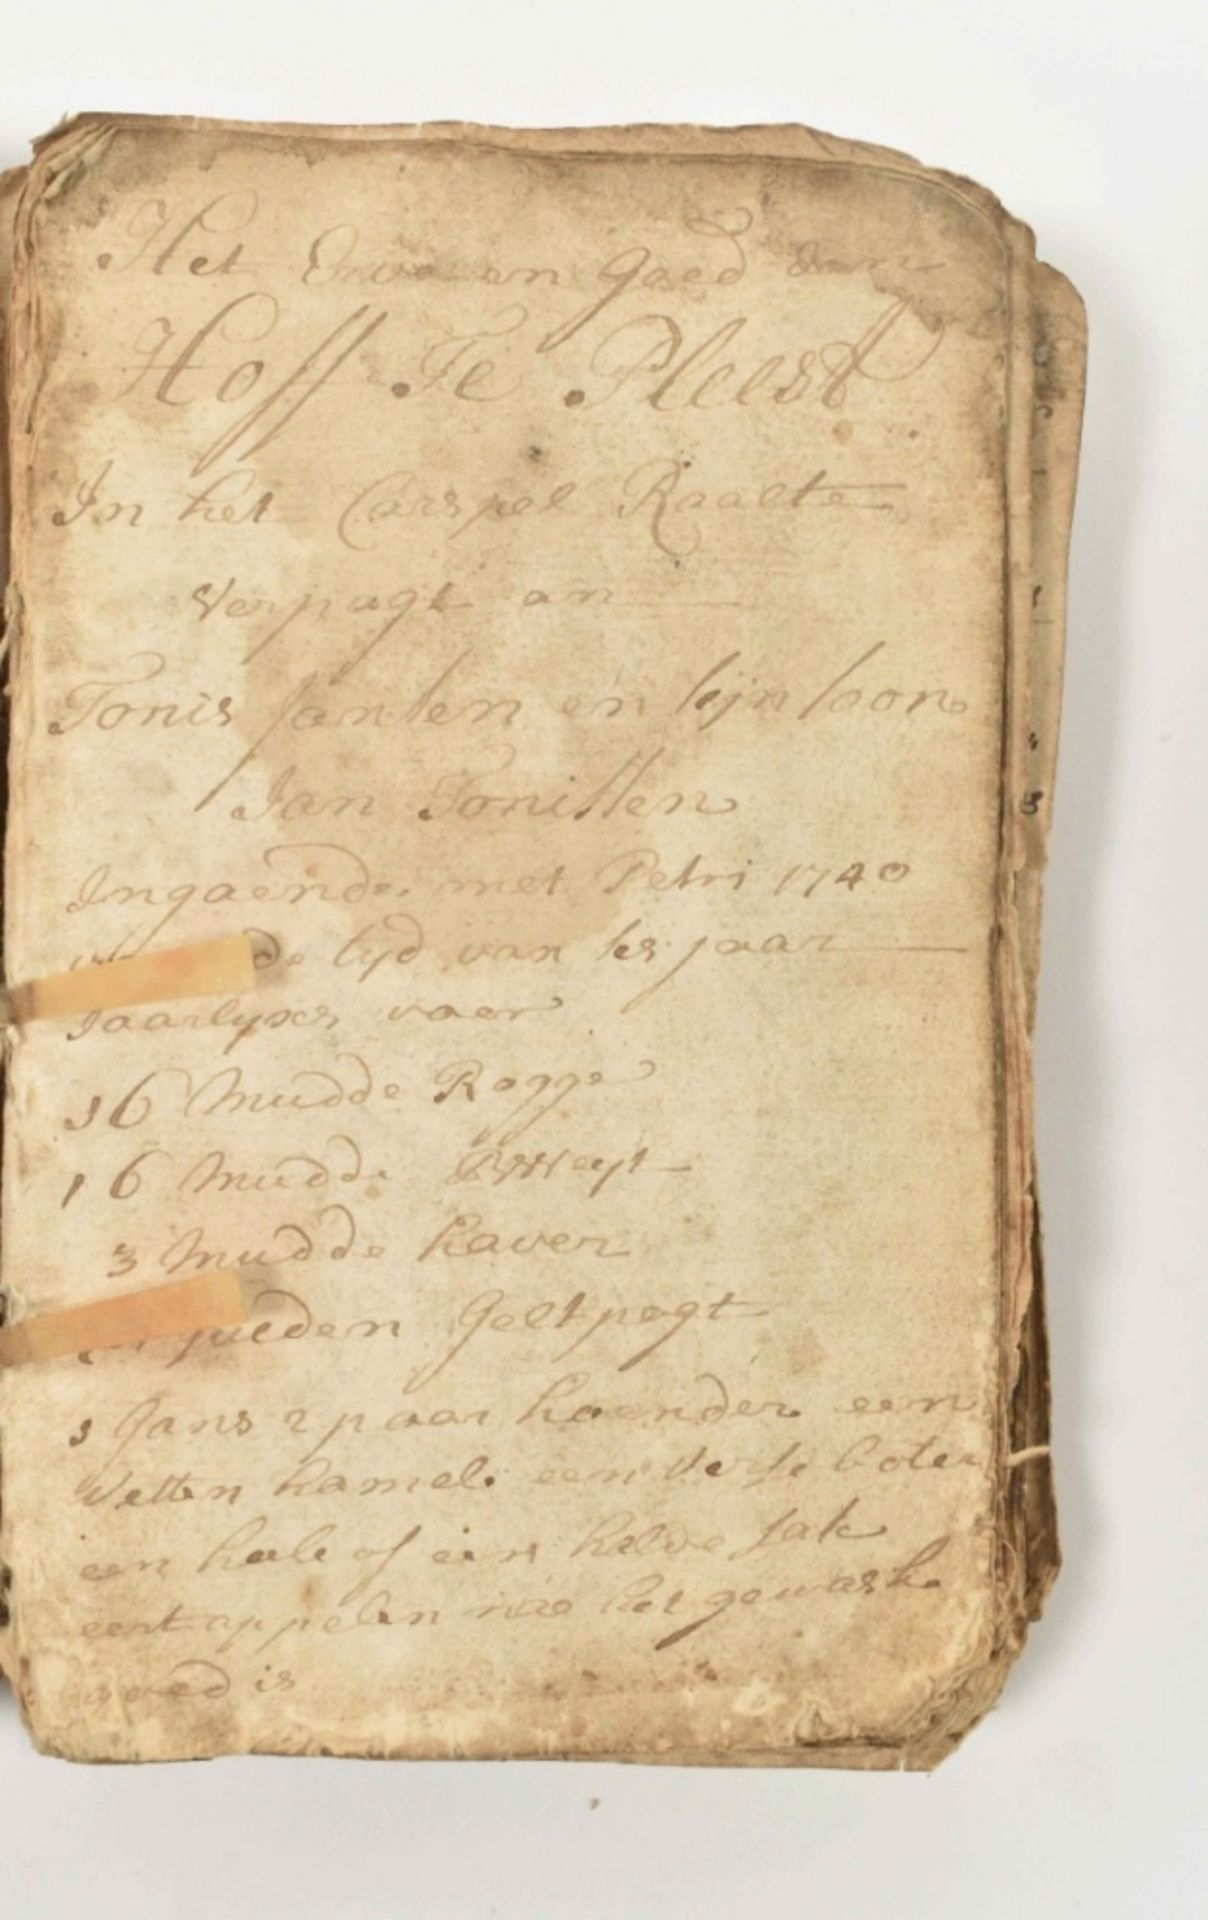 Het Erve en goed den
Hoff Te Pleest
In het Carspel Raalte
Verpagt an
Tonis Jansen en sijn soon
Jan Tonissen
Ingaende met Petri 1740
de tyd van ses jaar
Jaarlyxs voor
16 Mudde Rogge
16 Mudde BWeyt
3 Mudde haver
gulden Gelt pagt
1 gans 2 paar hoender een
vetten hamel een verse boter
een hele of een halve sak
eertappelen nae het gewas h
goed is